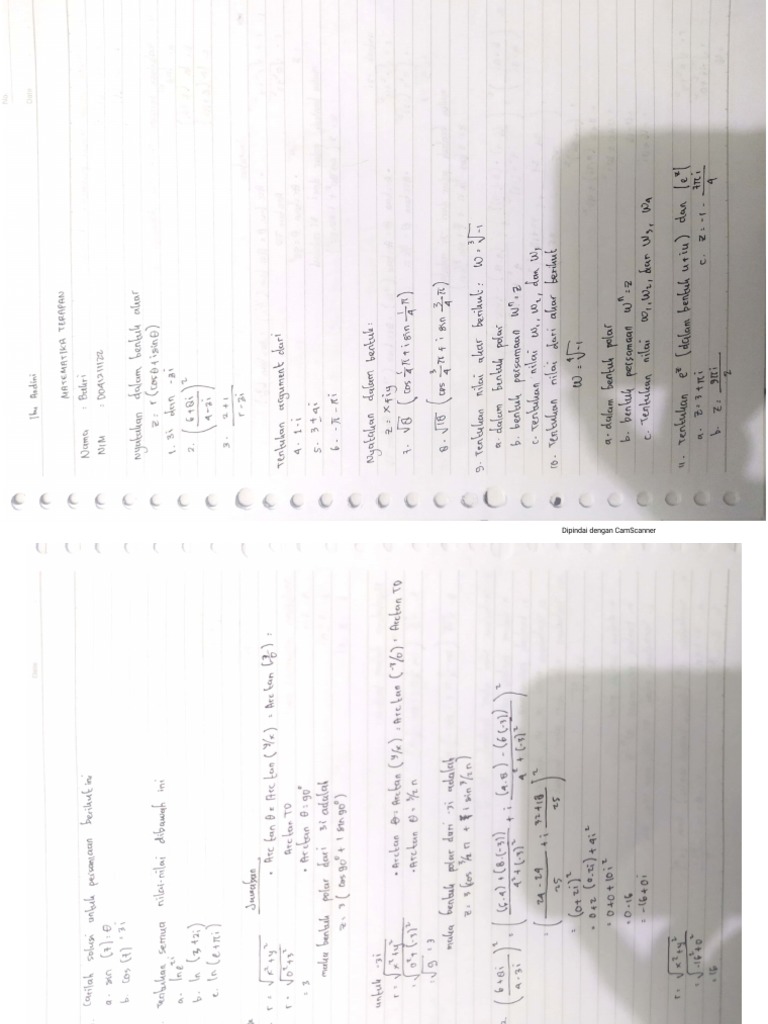 No
Date
Ibu Andini
MATEMATIKA TERAPAN
Nama :
NIM :
Nyatakan dalam bentuk akar
z = r (cos θ + i sin θ)
1. 3i dan -3i
2. (6+8i / 4-3i)²
3.
Tentukan argument dari
4. 1-i
5. 3+4i
6. -π-πi
Nyatakan dalam bentuk:
z = x+iy
7. √8 (cos 1/4 π + i sin 1/4 π)
8. √18 (cos 3/4 π + i sin 3/4 π)
9. Tentukan nilai akar berikut : W = ³√-1
a. dalam bentuk polar
b. bentuk persamaan Wⁿ = z
c. Tentukan nilai W₁, W₂, dan W₃
10. Tentukan nilai dari akar berikut
W = ⁴√-1
a. dalam bentuk polar
b. bentuk persamaan Wⁿ = z
c. Tentukan nilai W₁, W₂, dan W₃, W₄
11. Tentukan eᶻ (dalam bentuk u+iu) dan |eᶻ|
a. z = 3+πi
c. z = -1 - 7πi/4
b. z = 9πi/2
Dipindai dengan CamScanner
Date
Carilah solusi untuk persamaan berikut ini
a. sin (z) = 0
b. cos (z) = 3i
Tentukan semua nilai-nilai dibawah ini
b. ln (3+2i)
c. ln (e+πi)
Jawaban
r = √x²+y²
• Arc tan θ = Arc tan (y/x) = Arc tan
r = √0²+3²
Arc tan TD
= 3
• Arc tan θ = 90°
maka bentuk polar dari 3i adalah
z = 3 (cos 90° + i sin 90°)
untuk -3i
r = √x²+y²
• Arc tan θ = Arc tan (y/x) = Arc tan (-3/0) = Arc tan TD
= √0²+(-3)²
• Arc tan θ = 3/2 π
= √9 = 3
maka bentuk polar dari -3i adalah
z = 3 (cos 3/2 π + i sin 3/2 π)
2. (6+8i / 4-3i)² = ((6.4)+(8.(-3)) / 4²+(-3)² + i (4.8)-(6(-3)) / 4²+(-3)²)²
= (24-24 / 25 + i 32+18 / 25)²
= (0+2i)²
= 0+2 (0.2i)+4i²
r = √x²+y²
= 16